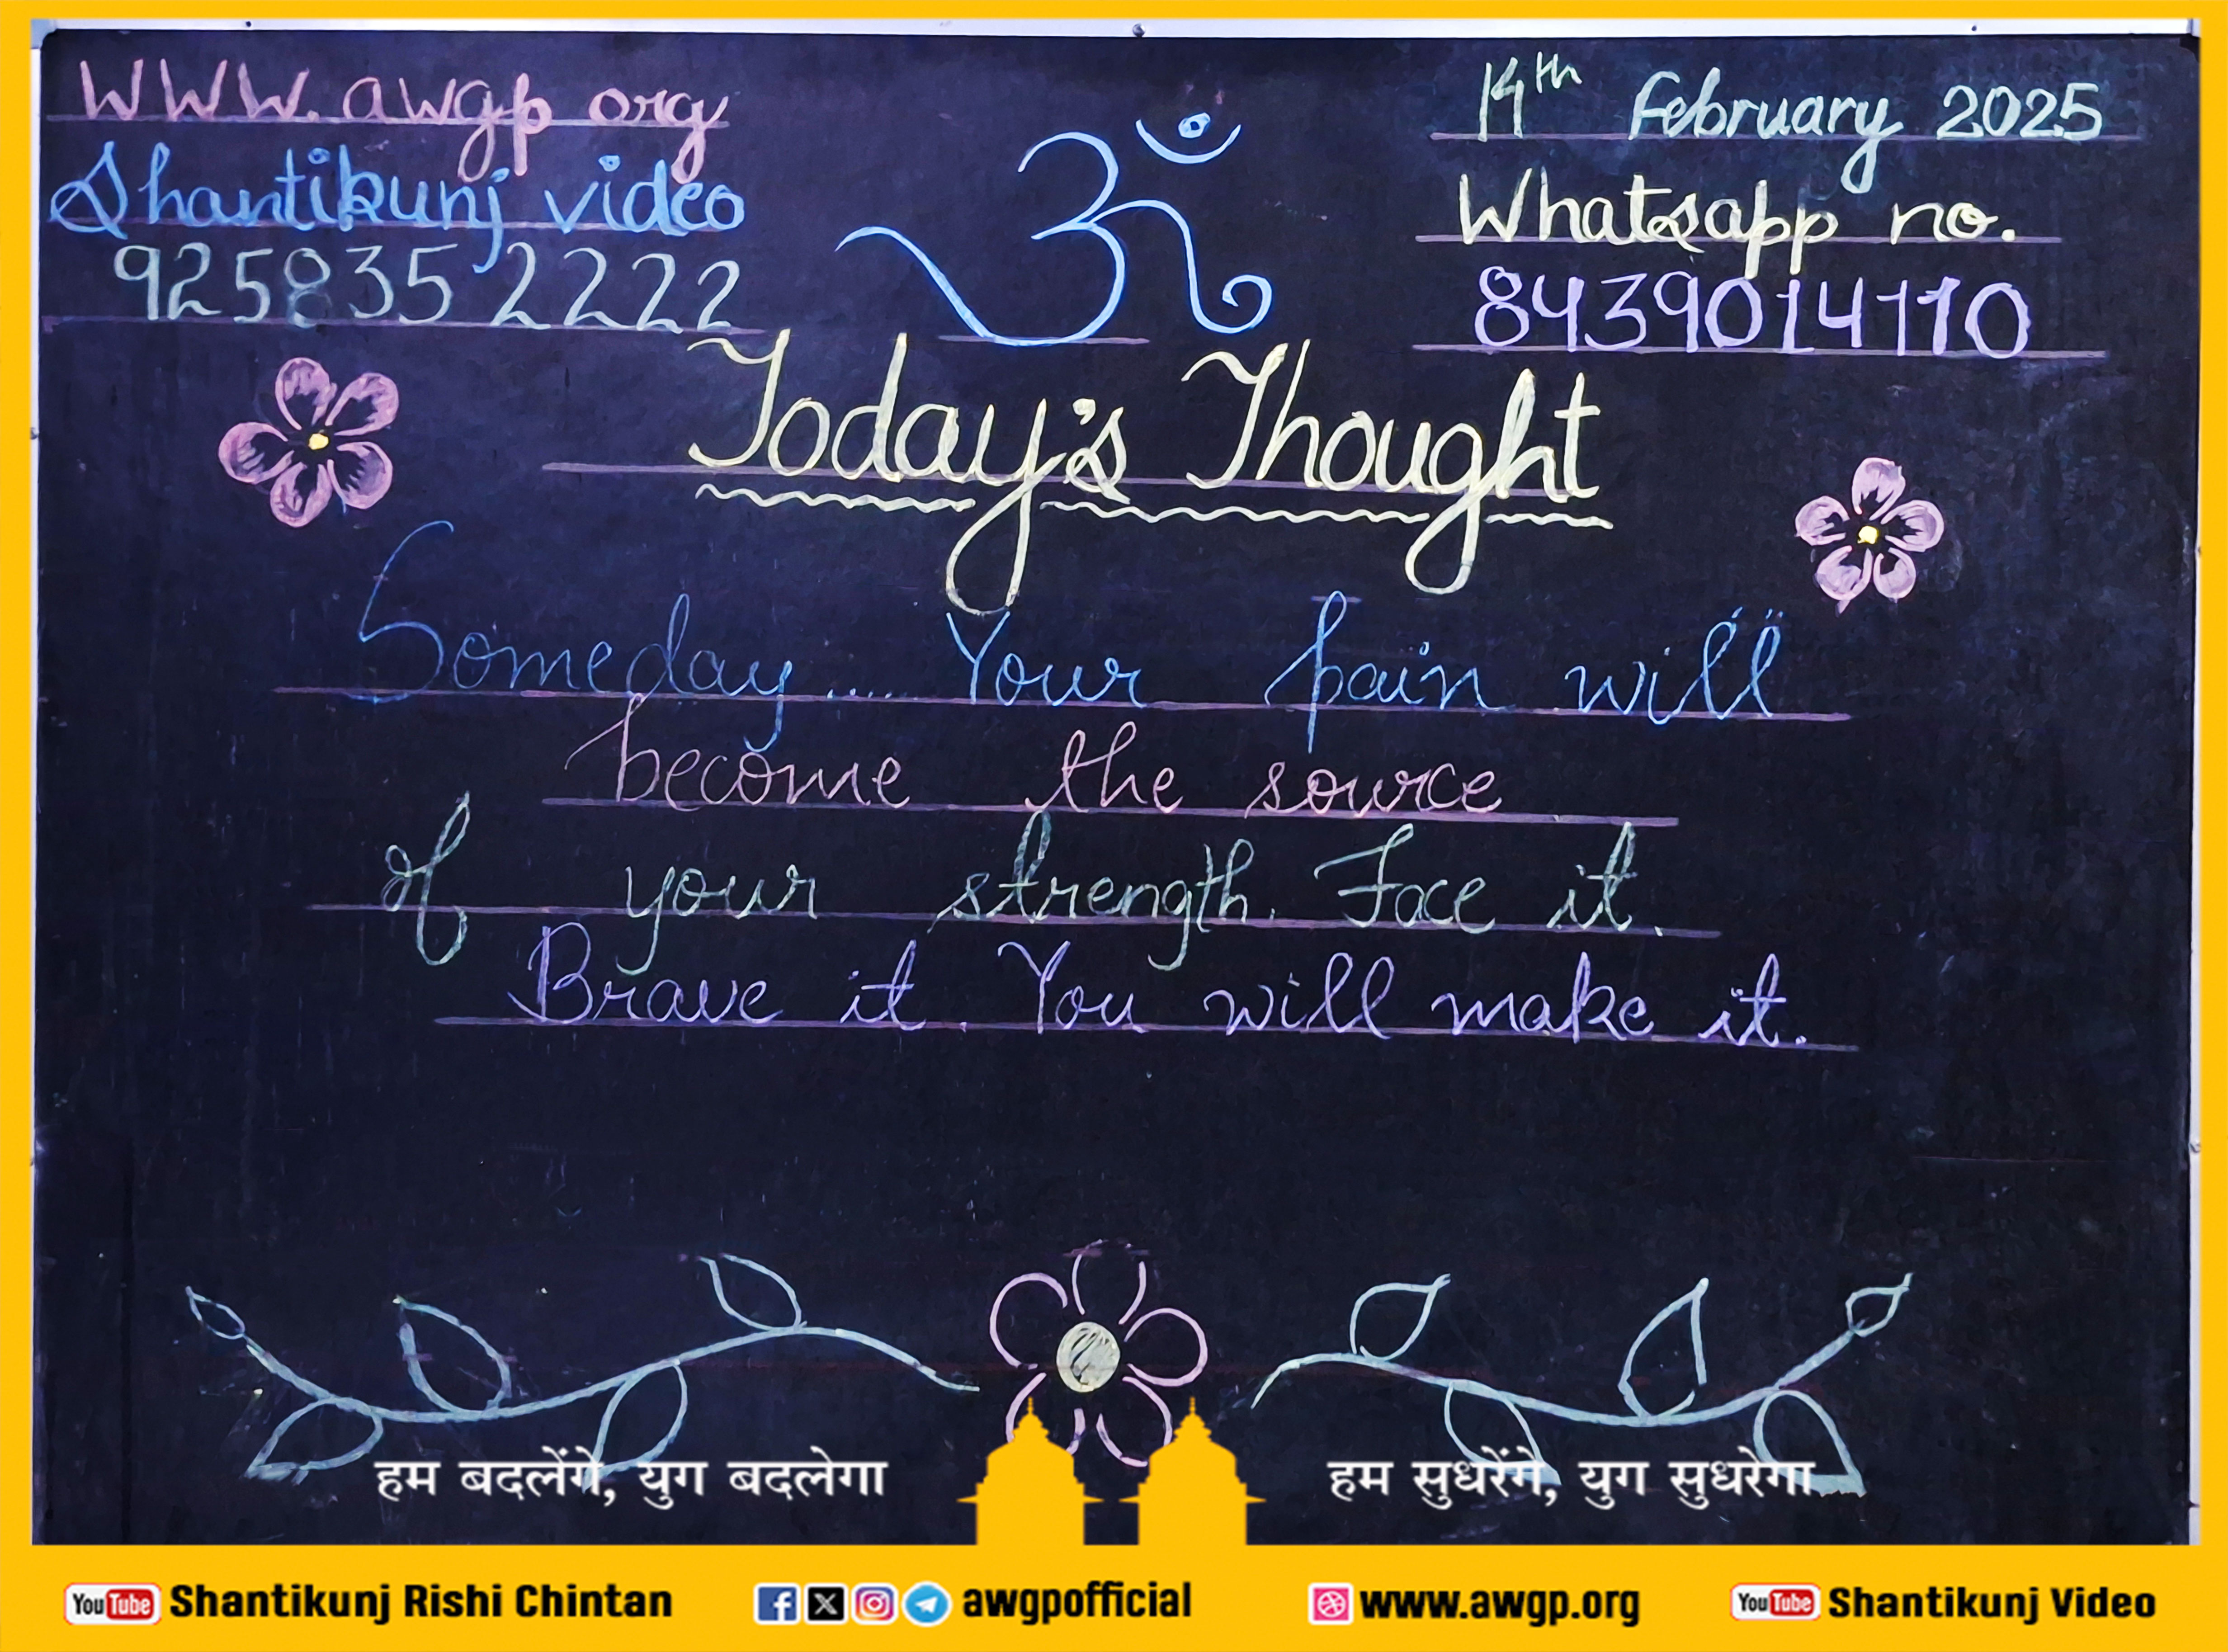 WWW.awgp org
Shantikunj video
9258352222
ॐ
14th February 2025
Whatsapp no.
8439014110
Today's Thought
Someday...... Your pain will
become the source
of your strength. Face it.
Brave it. You will make it.
हम बदलेंगे, युग बदलेगा
हम सुधरेंगे, युग सुधरेगा
YouTube Shantikunj Rishi Chintan
awgpofficial
www.awgp.org
YouTube Shantikunj Video